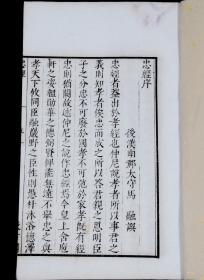 忠經序
後漢南郡太守馬 融譔
忠經者蓋出於孝經也仲尼說孝者所以事君之
義則知孝者俟忠而成之所以答君親之恩明臣
子之分忠不可廢於國孝不可弛於家孝既有經
忠則猶闕故述仲尼之說作忠經焉今皇上含庖
軒之姿韞勛華之德弼賢俾能無遠不舉忠之與
孝天下攸同臣融巖野之臣性則愚朴沐浴德澤